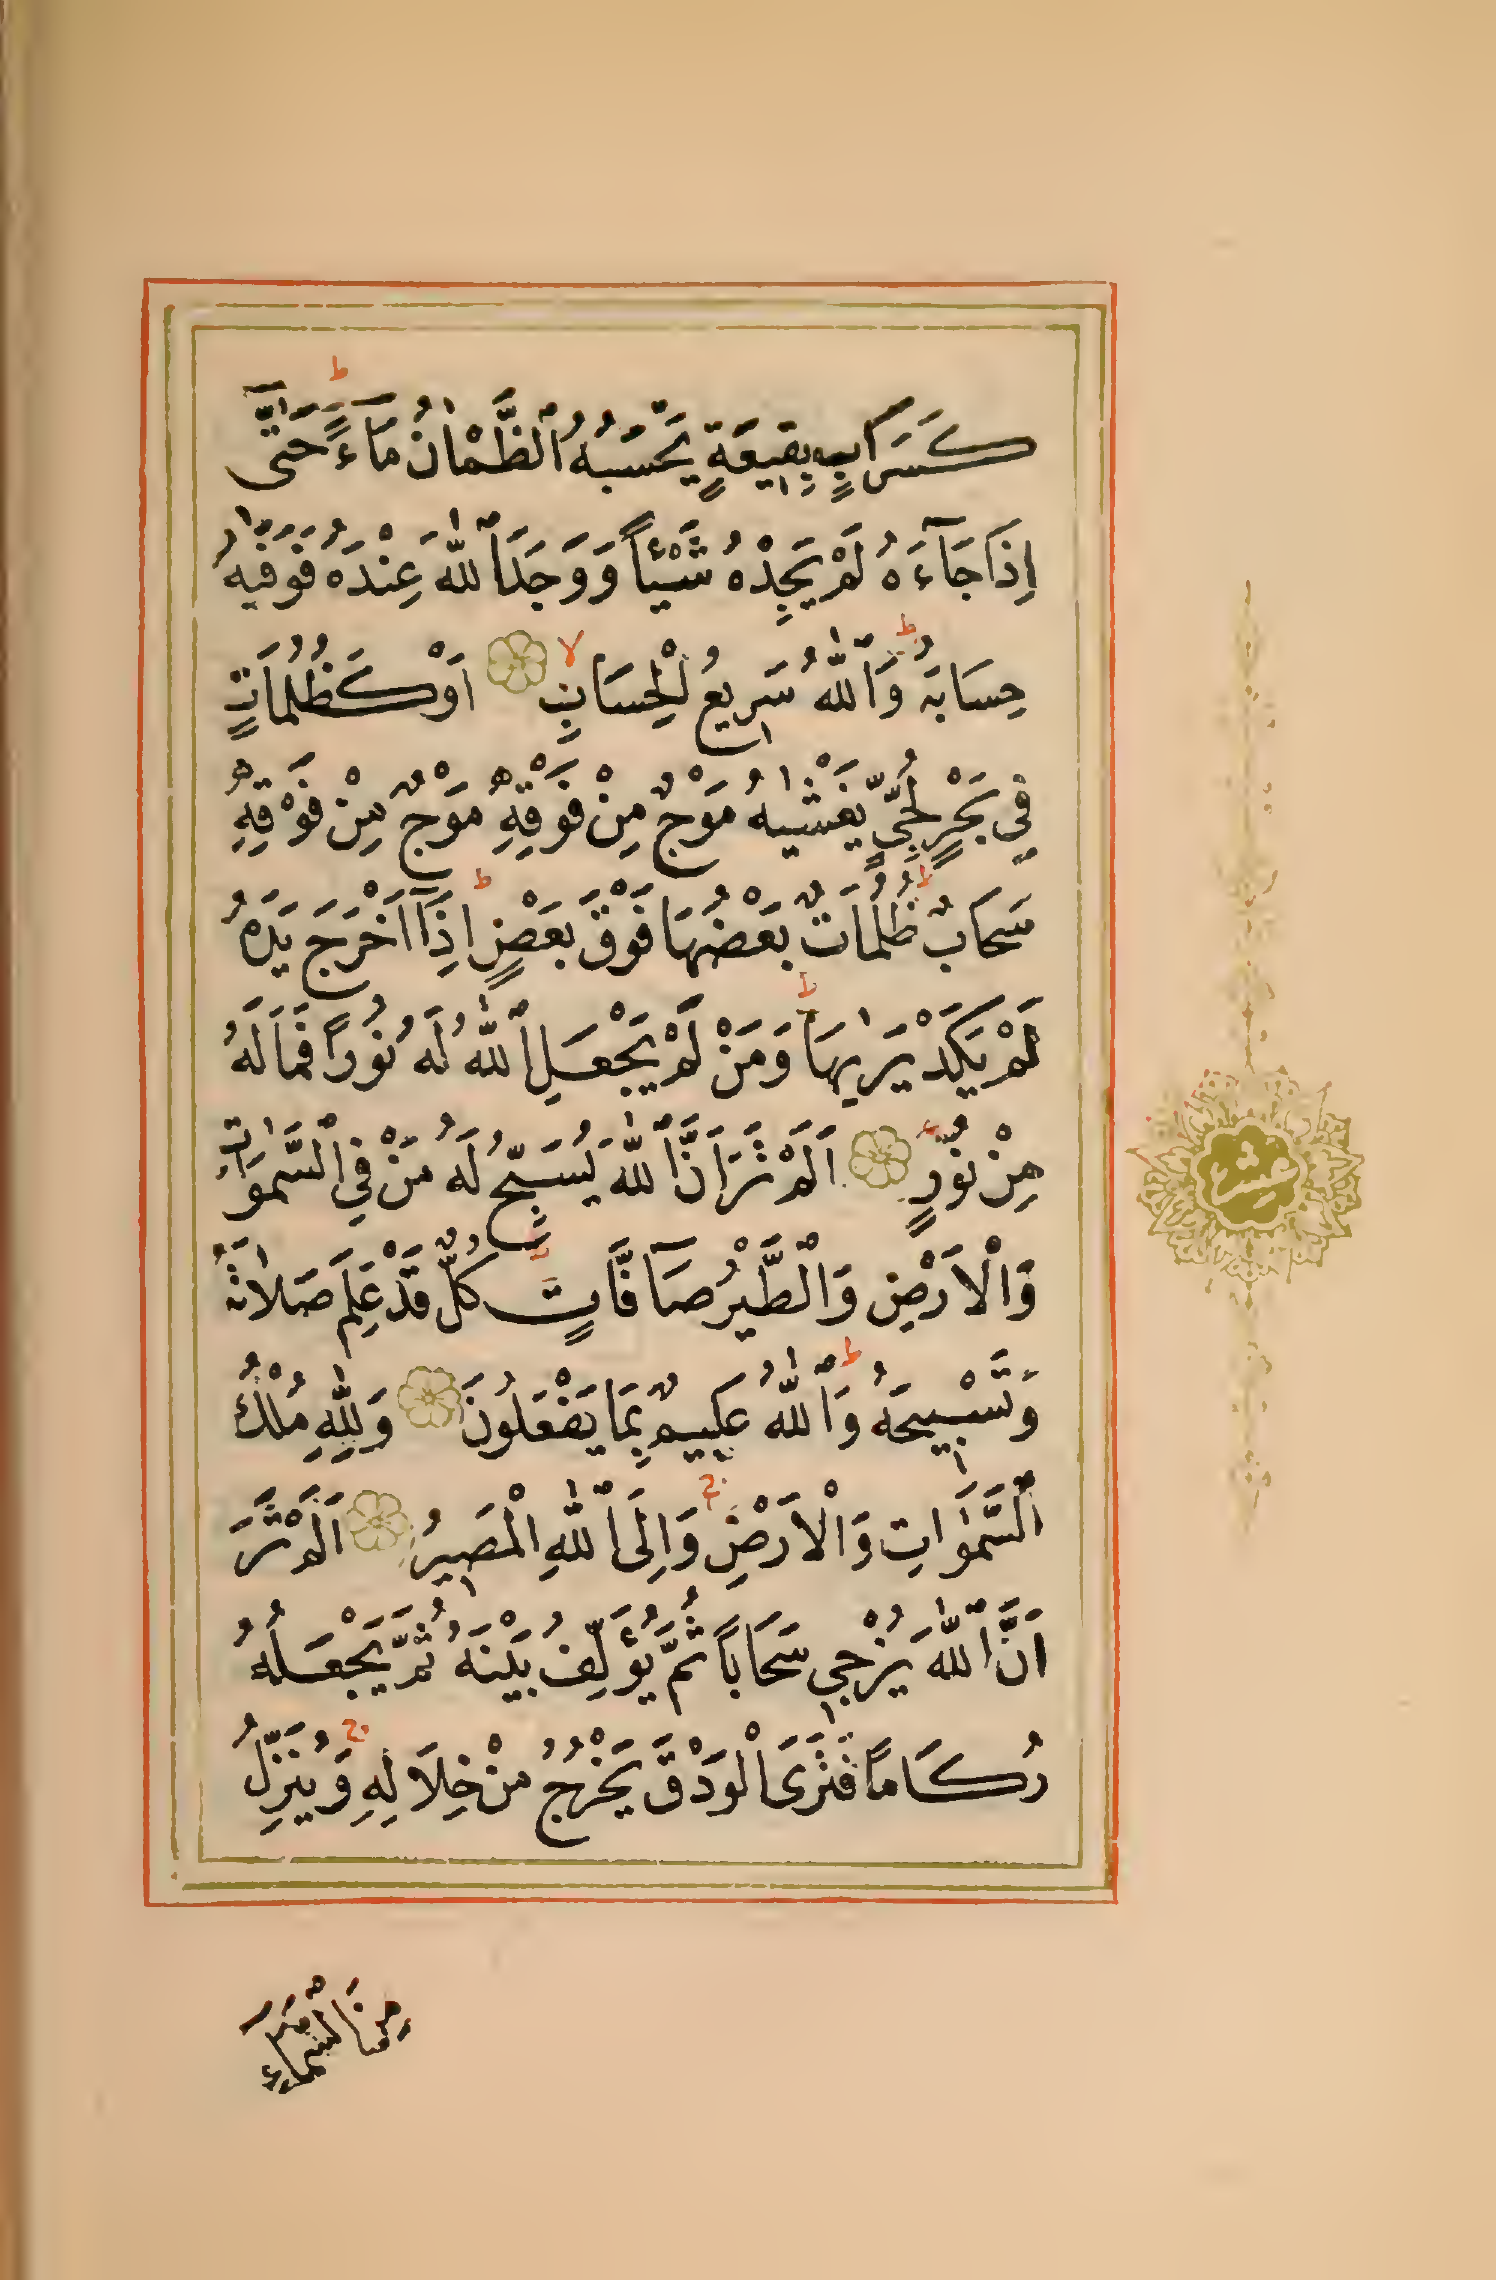 كَسَرَابٍ بِقِيعَةٍ يَحْسَبُهُ ٱلظَّمْاٰنُ مَآءً ط حَتّٰٓى
اِذَا جَآءَهُ لَمْ يَجِدْهُ شَيْـًٔا وَوَجَدَ ٱللّٰهَ عِنْدَهُ فَوَفّٰيهُ
حِسَابَهُ ط وَٱللّٰهُ سَرِيعُ ٱلْحِسَابِ لا اَوْ كَظُلُمَاتٍ
فِي بَحْرٍ لُجِّيٍّ يَغْشٰيهُ مَوْجٌ مِنْ فَوْقِهِ مَوْجٌ مِنْ فَوْقِهِ
سَحَابٌ ط ظُلُمَاتٌ بَعْضُهَا فَوْقَ بَعْضٍ ط اِذَآ اَخْرَجَ يَدَهُ
لَمْ يَكَدْ يَرٰيهَا ط وَمَنْ لَمْ يَجْعَلِ ٱللّٰهُ لَهُ نُورًا فَمَا لَهُ
مِنْ نُورٍ ع اَلَمْ تَرَ اَنَّ ٱللّٰهَ يُسَبِّحُ لَهُ مَنْ فِي ٱلسَّمٰوَاتِ
وَالْاَرْضِ وَالْطَّيْرُ صَآفَّاتٍ ط كُلٌّ قَدْ عَلِمَ صَلَاتَهُ
وَتَسْبِيحَهُ ط وَٱللّٰهُ عَلِيمٌ بِمَا يَفْعَلُونَ وَلِلّٰهِ مُلْكُ
ٱلسَّمٰوَاتِ وَالْاَرْضِ ج وَاِلَى ٱللّٰهِ الْمَصِيرُ اَلَمْ تَرَ
اَنَّ ٱللّٰهَ يُزْجِي سَحَابًا ثُمَّ يُؤَلِّفُ بَيْنَهُ ثُمَّ يَجْعَلُهُ
رُكَامًا فَتَرَى الْوَدْقَ يَخْرُجُ مِنْ خِلَالِهِ ج وَيُنَزِّلُ
مِنَ السَّمَآءِ